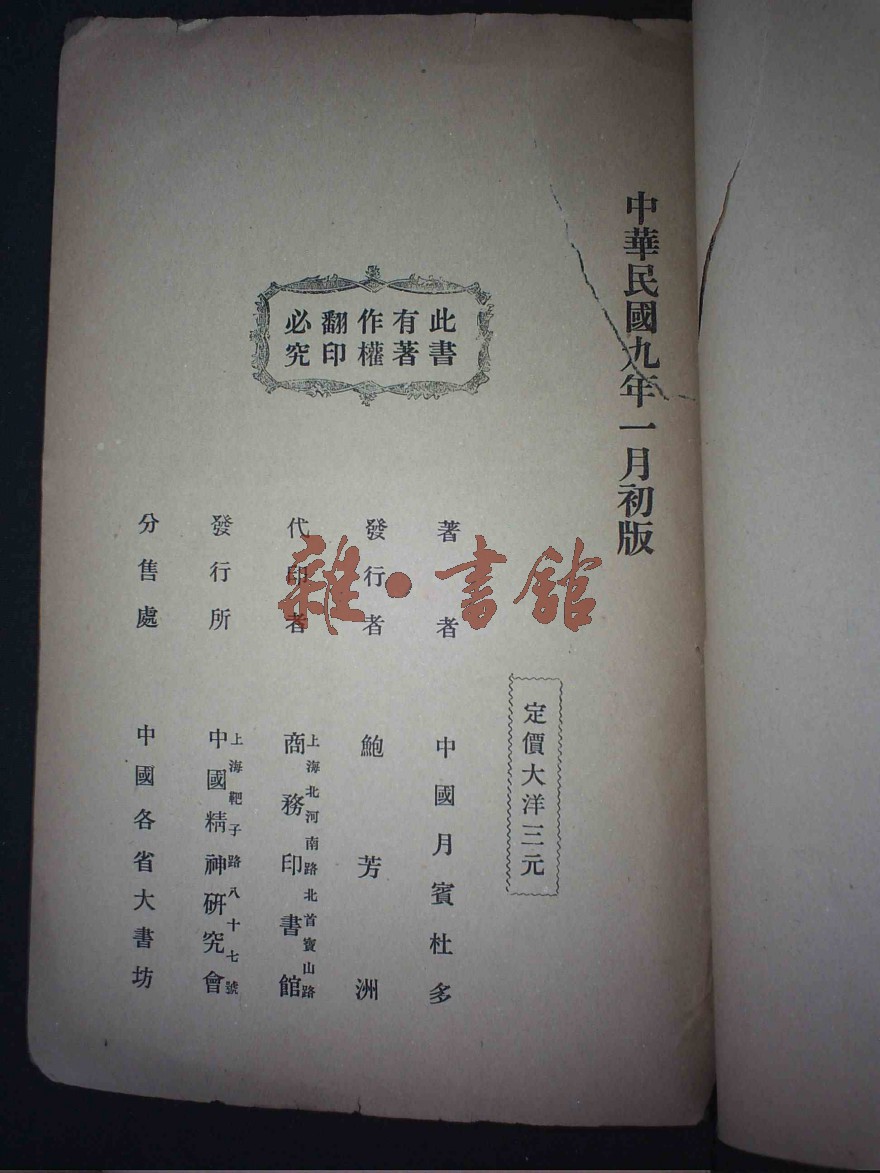 中華民國九年一月初版
此書
有著
作權
翻印
必究
定價大洋三元
著者 中國月賓杜多
發行者 鮑芳洲
代印者 上海北河南路北首寶山路 商務印書館
發行所 上海靶子路八十七號 中國精神研究會
分售處 中國各省大書坊
雜·書館